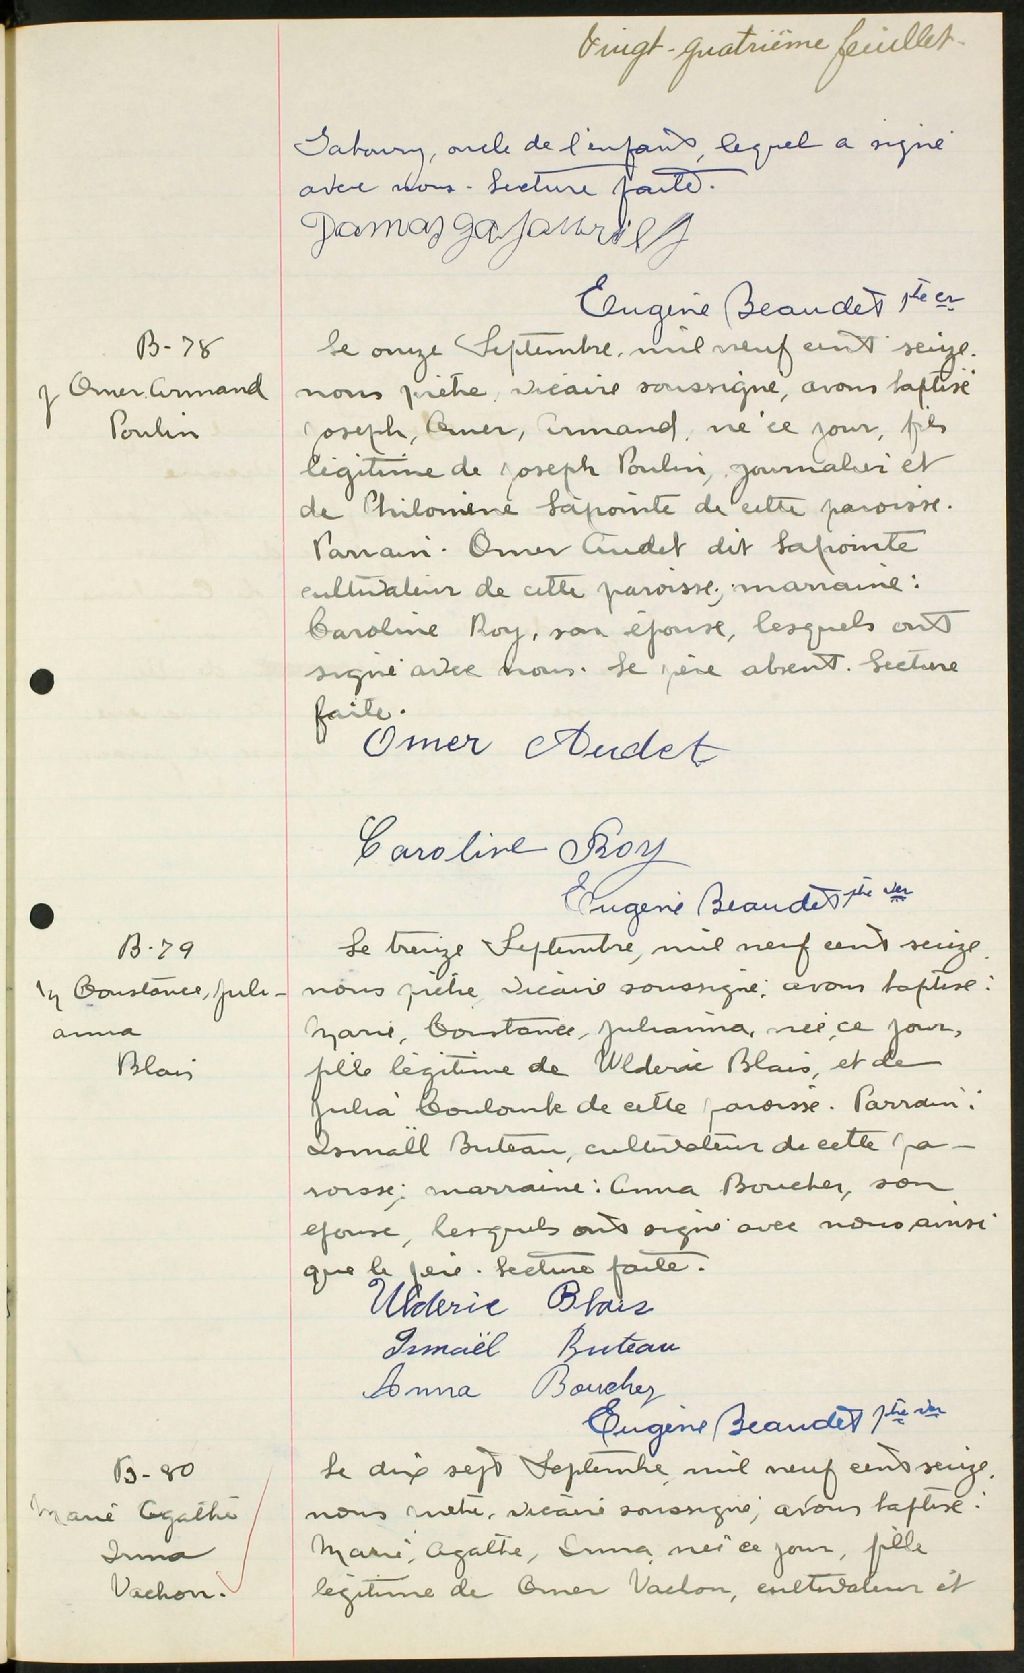 Vingt-quatrième feuillet.
Gaboury, oncle de l'enfant, lequel a signé
avec nous. Lecture faite.
Damas
Eugène Beaudet ptre vr
B-78
J Omer Armand
Poulin
Le onze Septembre, mil neuf cent seize.
nous prêtre, vicaire soussigné, avons baptisé
Joseph, Omer, Armand, né ce jour, fils
légitime de Joseph Poulin, journalier et
de Philomène Lapointe de cette paroisse.
Parrain: Omer Audet dit Lapointe
cultivateur de cette paroisse; marraine:
Caroline Roy, son épouse, lesquels ont
signé avec nous. Le père absent. Lecture
faite.
Omer Audet
Caroline Roy
Eugène Beaudet ptre vr
B-79
M Constance, Juli-
anna
Blais
Le treize Septembre, mil neuf cent seize,
nous prêtre, vicaire soussigné, avons baptisé:
Marie, Constance, Julianna, née ce jour,
fille légitime de Ulderic Blais, et de
Julia Coulombe de cette paroisse. Parrain:
Ismaël Buteau, cultivateur de cette pa-
roisse; marraine: Anna Boucher, son
épouse, lesquels ont signé avec nous ainsi
que le père. Lecture faite.
Ulderic Blais
Ismaël Buteau
Anna Boucher
Eugène Beaudet ptre vr
B-80
Marie Agathe
Irma
Vachon.
Le dix sept Septembre, mil neuf cent seize,
nous prêtre, vicaire soussigné, avons baptisé:
Marie, Agathe, Irma, née ce jour, fille
légitime de Omer Vachon, cultivateur et